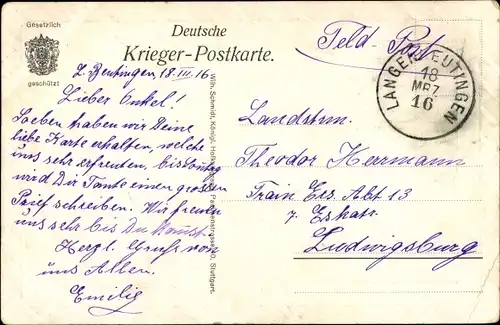 Gesetzlich
geschützt
Deutsche
Krieger-Postkarte.
Feld-Post
LANGENBEUTINGEN
18
MRZ
16
L. Beutingen 18.III.16
Lieber Onkel!
Soeben haben wir Deine
liebe Karte erhalten, welche
uns sehr erfreuten, bis Sonntag
wird Dir Tante einen großen
Brief schreiben. Wir freuen
uns sehr bis Du kommst.
Herzl. Gruß von
uns Allen.
Emilie
Wilh. Schmidt, Königl. Stuttgart.
Landstrm.
Theodor Herrmann
Train Ers. Abt 13
7. Eskatr.
Ludwigsburg